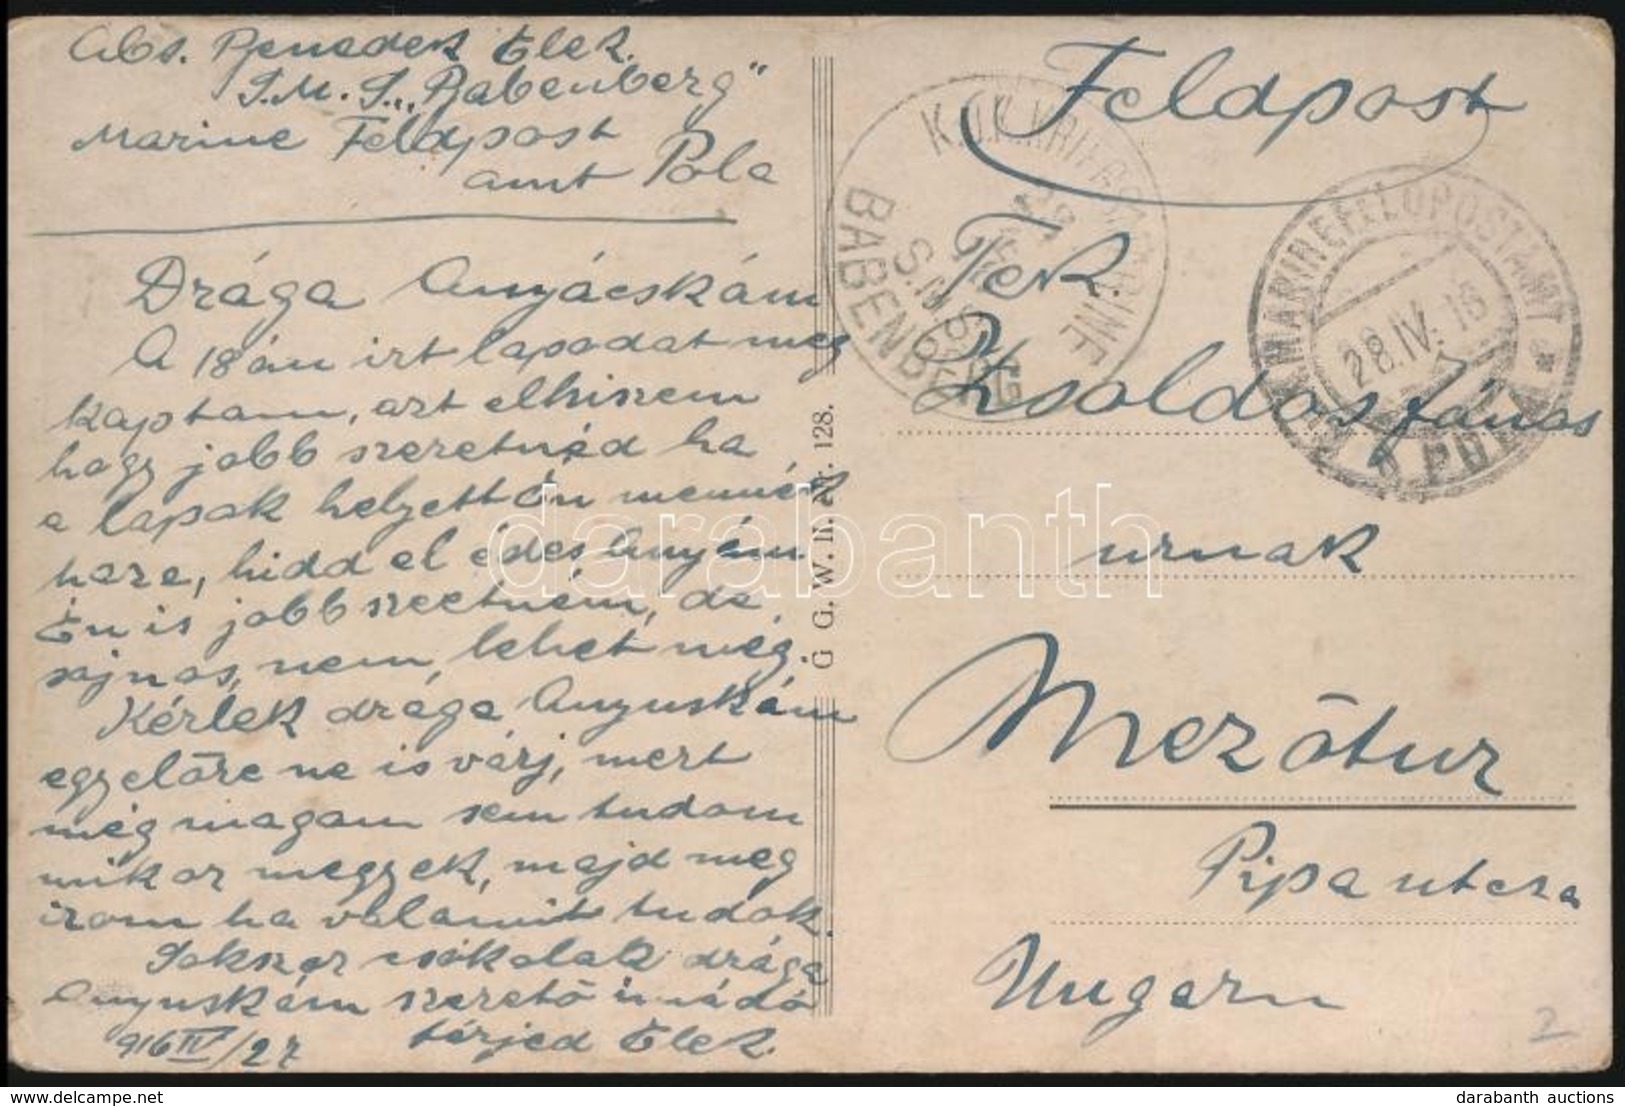 Abs. Benedek Elek.
S.M.S. „Babenberg"
Marine Feldpost
amt Pola
Drága Anyácskám
A 18án irt lapodat meg
kaptam, azt elhiszem
hogy jobb szeretnéd ha
a lapok helyett Én mennék
haza, hidd el édes Anyám
Én is jobb szeetném, de
sajnos, nem lehet még.
Kérlek drága Anyuskám
egyelőre ne is várj, mert
még magam sem tudom
mikor megyek, majd meg
irom ha valamit tudok.
Sokszor csókolak drága
Anyuskám szerető imádó
férjed Elek.
916 IV/27
G G. W. II. Nr. 128.
Feldpost
K.U.K. KRIEGSMARINE
S.M.S.
BABENBERG
MARINEFELDPOSTAMT
28.IV.16
POLA
Tek.
Zsoldos János
urnak
Mezőtur
Pipa utcza
Ungarn
2
darabanth
darabanth auctions